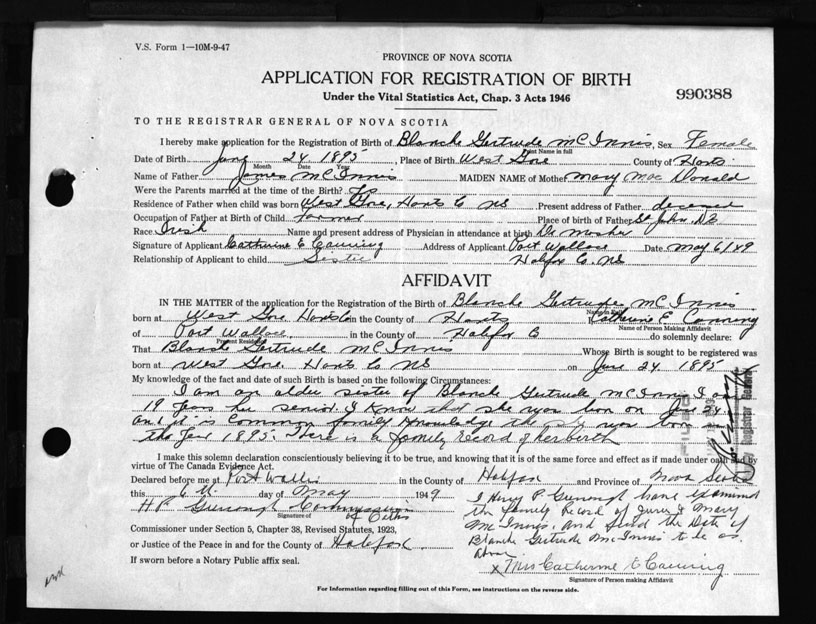 V.S. Form 1—10M-9-47
PROVINCE OF NOVA SCOTIA
APPLICATION FOR REGISTRATION OF BIRTH
990388
Under the Vital Statistics Act, Chap. 3 Acts 1946
TO THE REGISTRAR GENERAL OF NOVA SCOTIA
I hereby make application for the Registration of Birth of Blanche Gertrude McInnis, Sex Female
Print Name in full
Date of Birth 24 1895, Place of Birth West Gore County of Hants
Month Date Year
Name of Father James McInnis MAIDEN NAME of Mother Mary Mac Donald
Were the Parents married at the time of the Birth?
Residence of Father when child was born West Gore, Hants Co NS Present address of Father deceased
Occupation of Father at Birth of Child farmer Place of birth of Father St John,
Race Irish Name and present address of Physician in attendance at birth Dr Mosher
Signature of Applicant Catherine E Canning Address of Applicant Port Wallace Date May 6/49
Relationship of Applicant to child Sister Halifax Co. NS
AFFIDAVIT
IN THE MATTER of the application for the Registration of the Birth of Blanche Gertrude McInnis
Name in Full
born at West Gore Hants Co in the County of Hants Catherine E. Canning
Name of Person Making Affidavit
of Port Wallace in the County of Halifax Co do solemnly declare:
Present Residence
That Blanche Gertrude McInnis Whose Birth is sought to be registered was
born at West Gore. Hants Co NS on June 24 1895
My knowledge of the fact and date of such Birth is based on the following Circumstances:
I am an older sister of Blanche Gertrude McInnis I am
19 years her senior. I know that she was born on June 24
and it is common family knowledge that she was born
the year 1895. There is a family record of her birth
I make this solemn declaration conscientiously believing it to be true, and knowing that it is of the same force and effect as if made under oath and by
virtue of The Canada Evidence Act.
Declared before me at Port Wallis in the County of Halifax and Province of Nova Scotia
this 6th day of May 1949
I Harry P. have examined
the family record of James & Mary
H P Commissioner
Signature of
McInnis, and find the Date of
Commissioner under Section 5, Chapter 38, Revised Statutes, 1923,
Blanche Gertrude McInnis to be as
or Justice of the Peace in and for the County of Halifax
above
If sworn before a Notary Public affix seal.
x Mrs Catherine E Canning
Signature of Person making Affidavit
For Information regarding filling out of this Form, see instructions on the reverse side.
Registrar General